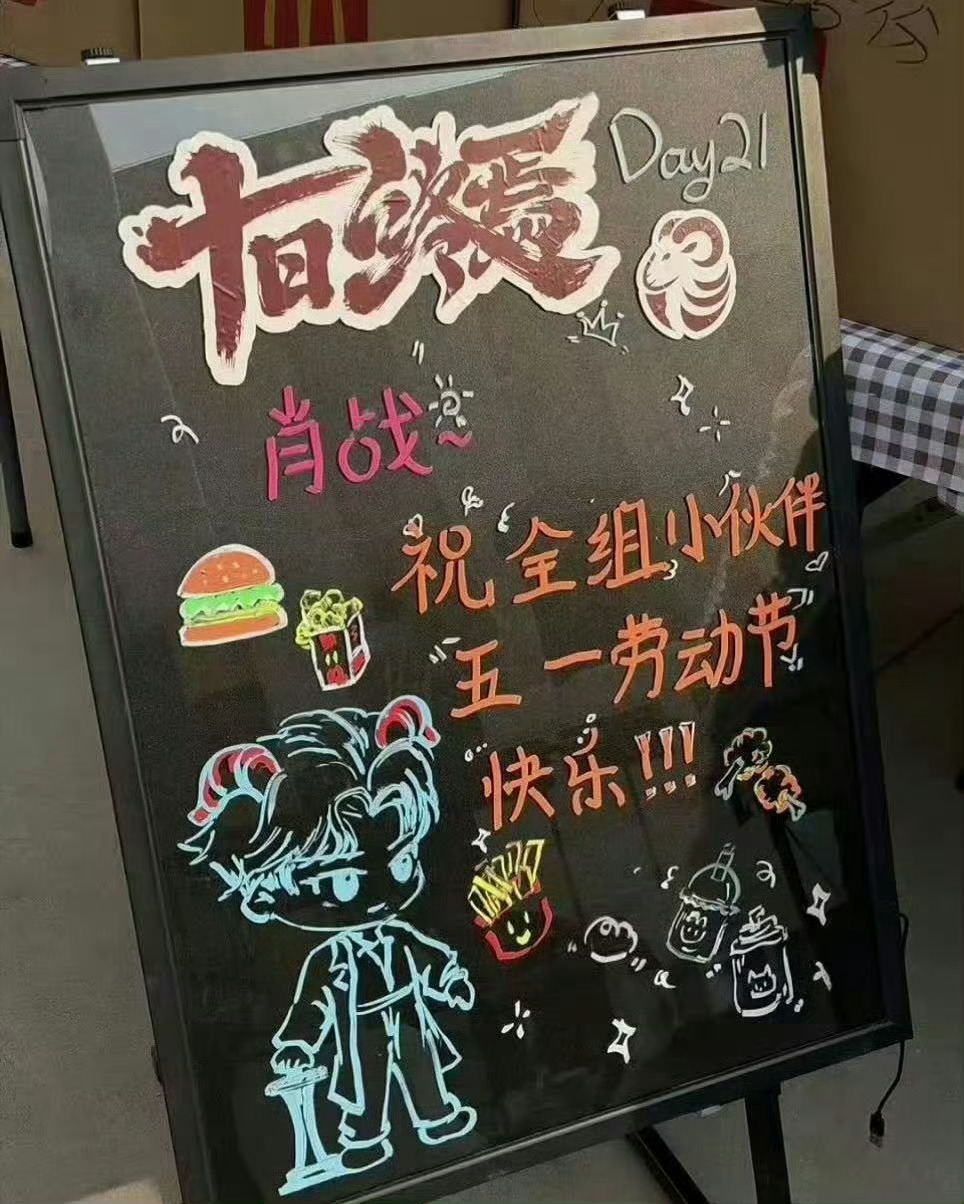 十日终焉
Day21
肖战~
祝全组小伙伴
五一劳动节
快乐!!!